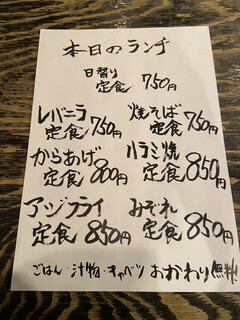 本日のランチ
日替り
定食 750円
レバニラ
定食 750円
焼そば
定食 750円
からあげ
定食 800円
ハラミ焼
定食 850円
アジフライ
定食 850円
みぞれ
定食 850円
ごはん・汁物・キャベツ おかわり無料!